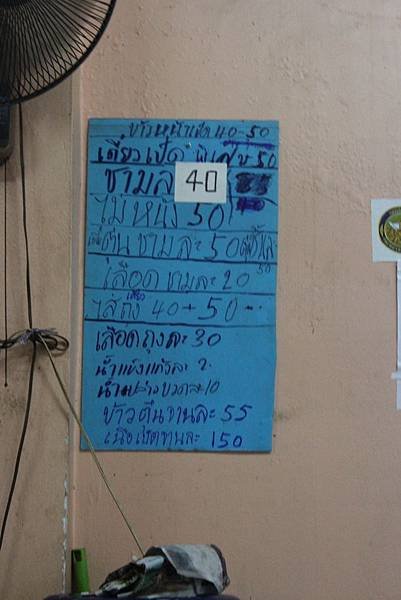 ข้าวหน้าเป็ด 40-50
เตี๋ยวเป็ด พิเศษ 50
ชามละ 40
ไม่หนัง 50
ตุ๋นชามละ 50
เลือดชามละ 20
ไส้ถุง 40-50
เลือดถุงละ 30
น้ำแข็งแก้วละ 2
น้ำเปล่าขวดละ 10
ข้าวต้มจานละ 55
150